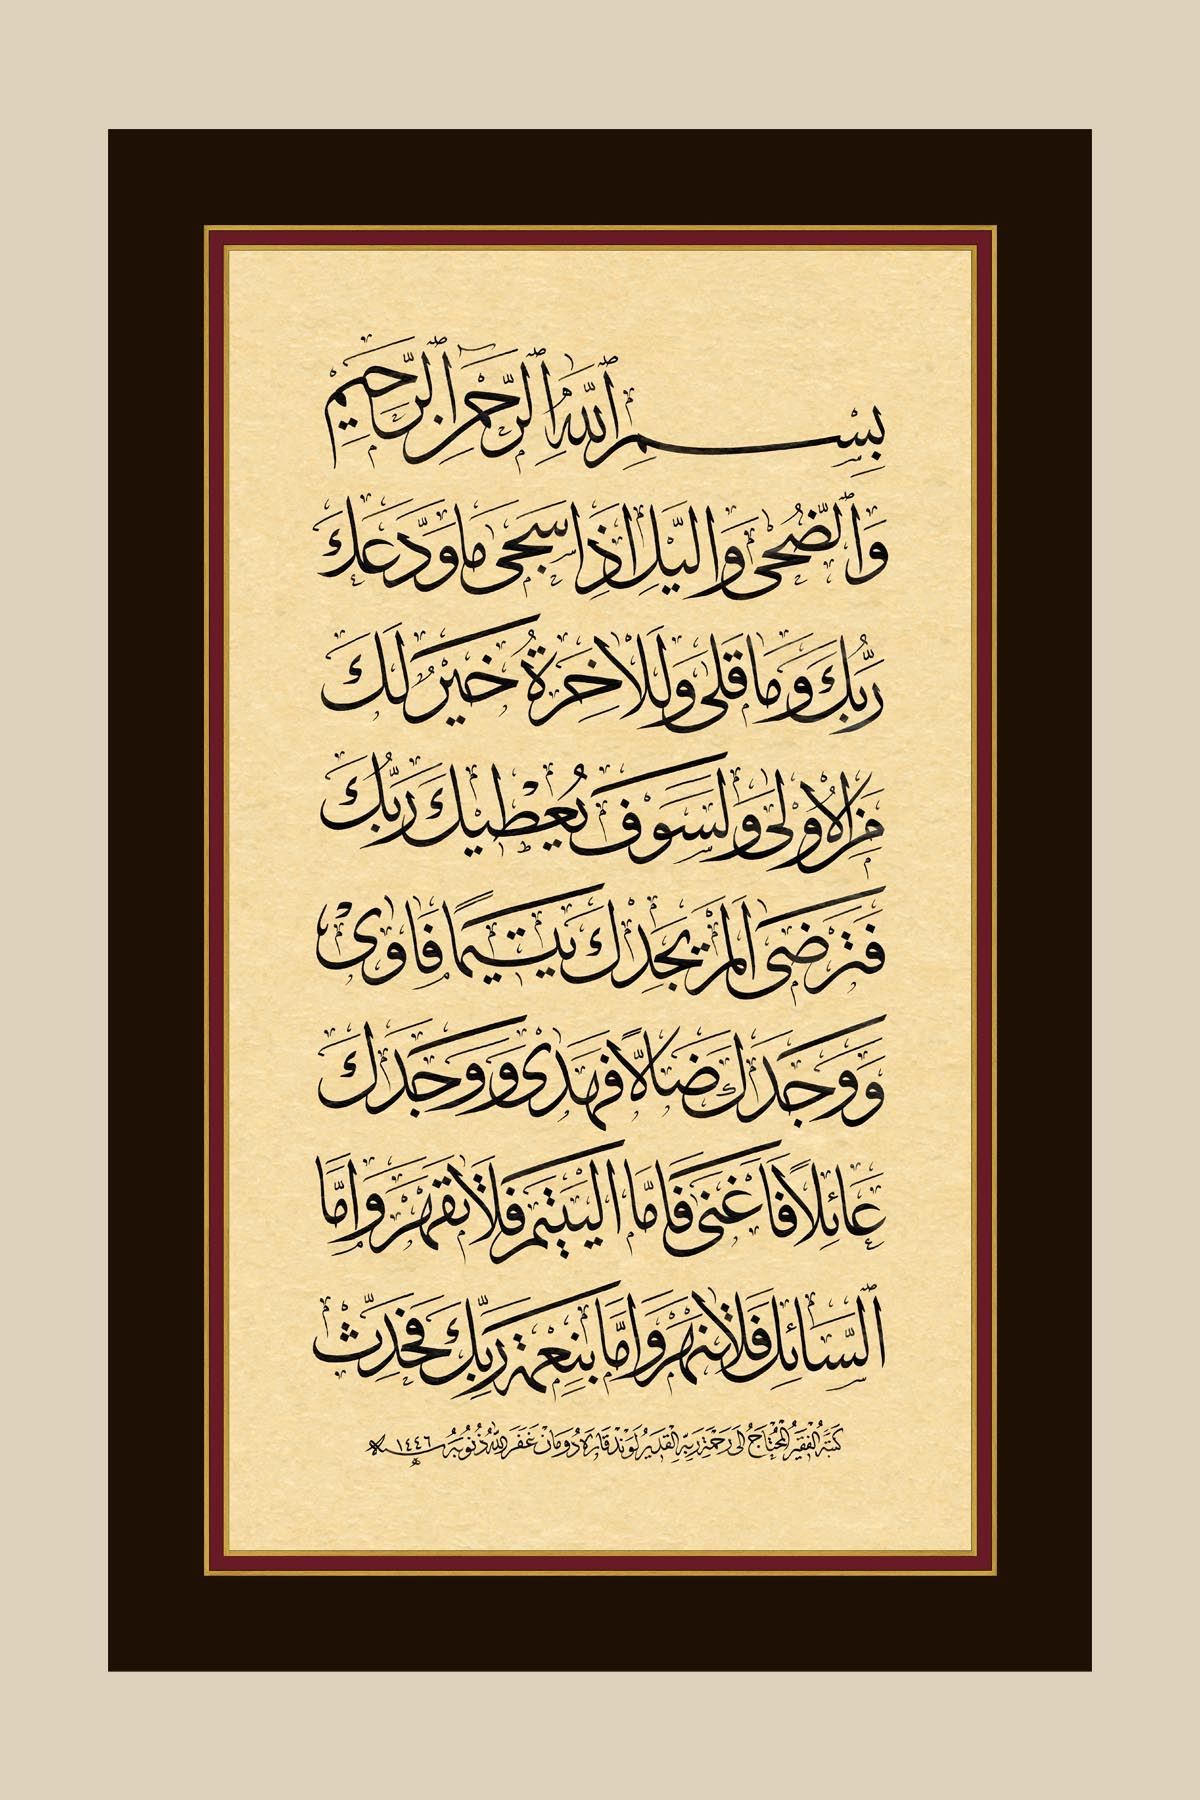 بِسْمِ ٱللّٰهِ ٱلرَّحْمٰنِ ٱلرَّحِيمِ
وَٱلضُّحٰى وَالَّيْلِ اِذَا سَجٰى مَا وَدَّعَكَ
رَبُّكَ وَمَا قَلٰى وَلَلْاٰخِرَةُ خَيْرٌ لَكَ
مِنَ الْاُولٰى وَلَسَوْفَ يُعْطِيكَ رَبُّكَ
فَتَرْضٰى اَلَمْ يَجِدْكَ يَتِيمًا فَاٰوٰى
وَوَجَدَكَ ضَالًّا فَهَدٰى وَوَجَدَكَ
عَائِلًا فَاَغْنٰى فَاَمَّا الْيَتِيمَ فَلَا تَقْهَرْ وَاَمَّا
ٱلسَّائِلَ فَلَا تَنْهَرْ وَاَمَّا بِنِعْمَةِ رَبِّكَ فَحَدِّثْ
كتبه الفقير المحتاج الى رحمة ربه القدير لوند قاره دومان غفر الله ذنوبه سنه ١٤٤٦